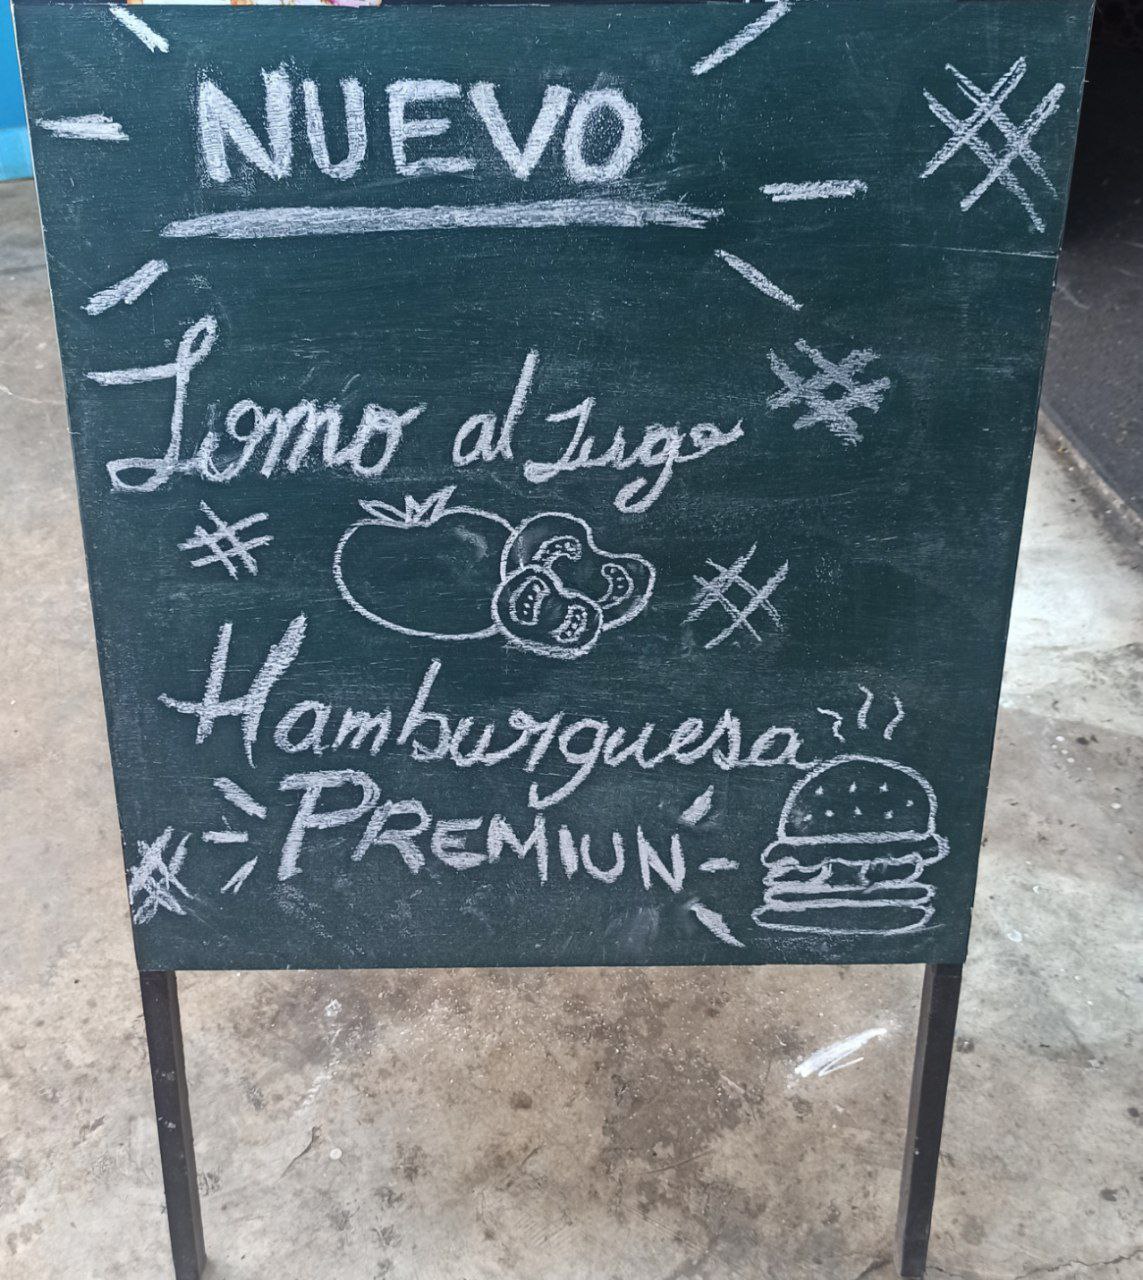 NUEVO
Lomo al Jugo
Hamburguesa
PREMIUN